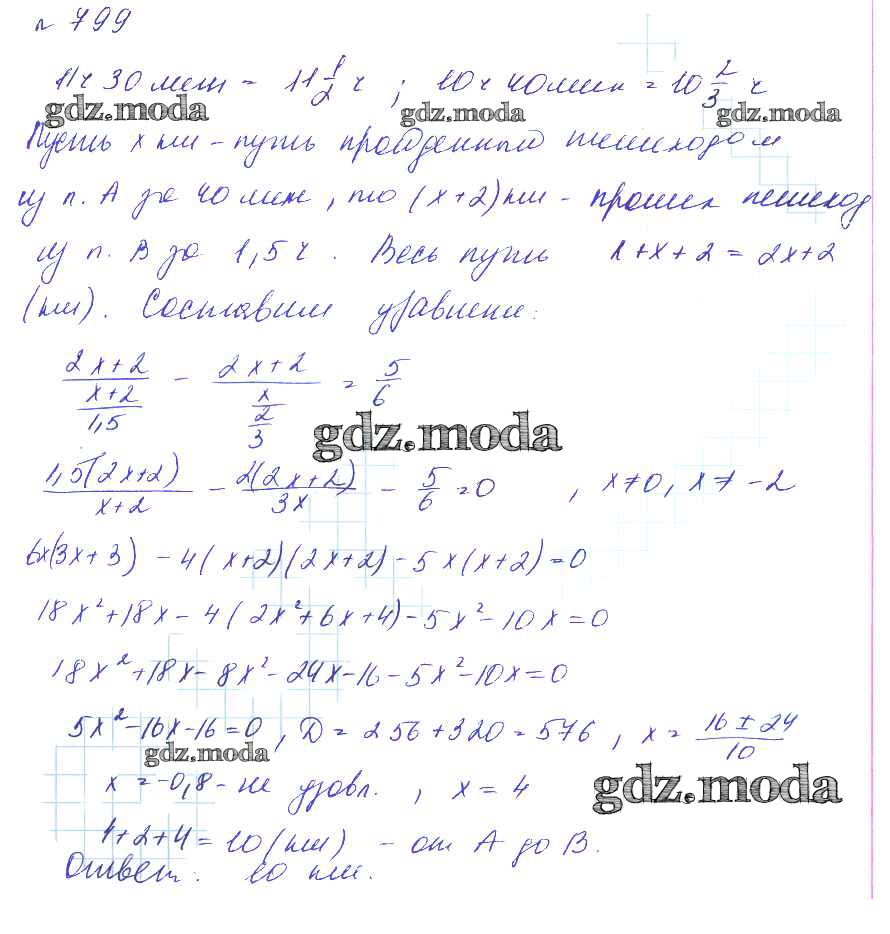 № 799
11ч 30 мин = 11 1/2 ч ; 10ч 40мин = 10 2/3 ч
gdz.moda gdz.moda gdz.moda
Пусть x км - путь пройденный пешеходом
из п. А за 40 мин, то (x+2)км - прошел пешеход
из п. В за 1,5ч. Весь путь x+x+2 = 2x+2
(км). Составим уравнение:
(2x+2)/((x+2)/1,5) - (2x+2)/(x/(2/3)) = 5/6
gdz.moda
1,5(2x+2)/(x+2) - 2(2x+2)/3x - 5/6 = 0 , x≠0, x≠-2
6x(3x+3) - 4(x+2)(2x+2) - 5x(x+2) = 0
18x²+18x - 4(2x²+6x+4) - 5x² - 10x = 0
18x²+18x - 8x² - 24x - 16 - 5x² - 10x = 0
5x² - 16x - 16 = 0 , D = 256+320 = 576 , x = (16 ± 24)/10
gdz.moda
x = -0,8 - не удовл. , x = 4
gdz.moda
4+2+4 = 10 (км) - от А до В.
Ответ: 10 км.